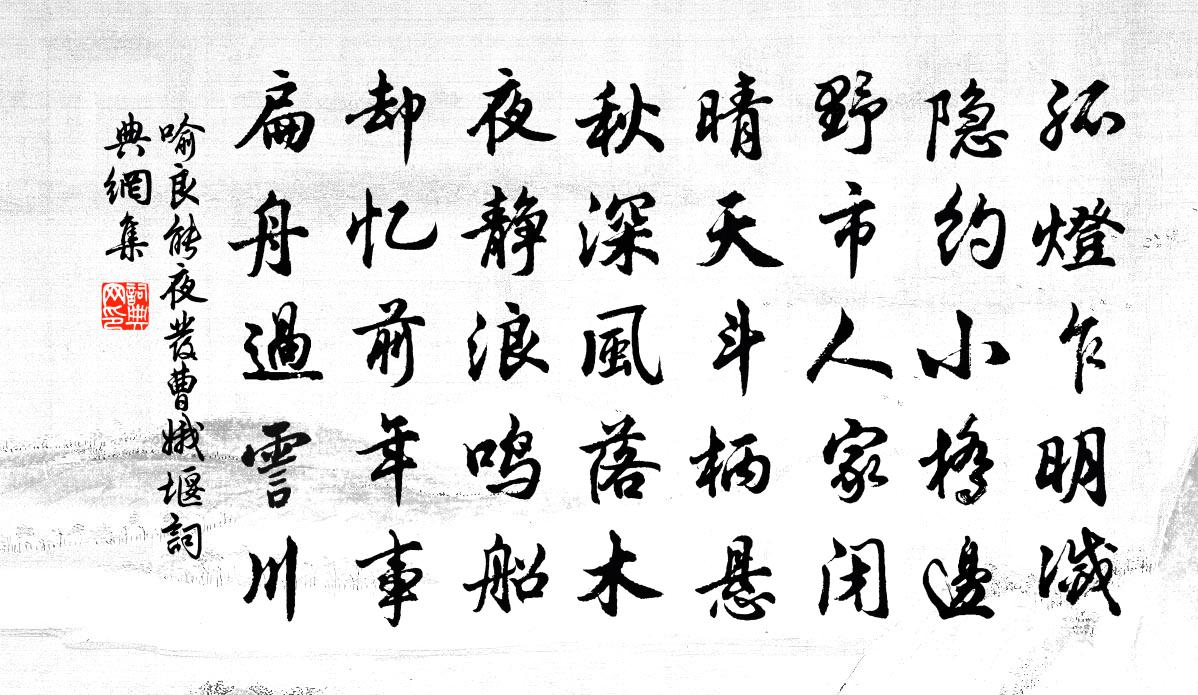 孤燈乍明滅
隐约小橋邊
野市人家闭
晴天斗柄悬
秋深風落木
夜静浪鸣船
却忆前年事
扁舟過霅川
喻良能夜發曹娥堰詞
典網集
詞典
网印